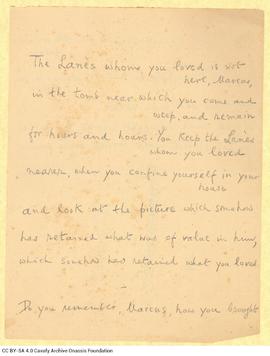 The Lanes whom you loved is not
here, Marcus,
in the tomb near which you come and
weep, and remain
for hours and hours. You keep the Lanes
whom you loved
nearer, when you confine yourself in your
house
and look at the picture which somehow
has retained what was of value in him,
which somehow has retained what you loved
Do you remember, Marcus, how you brought
CC BY-SA 4.0 Cavafy Archive Onassis Foundation